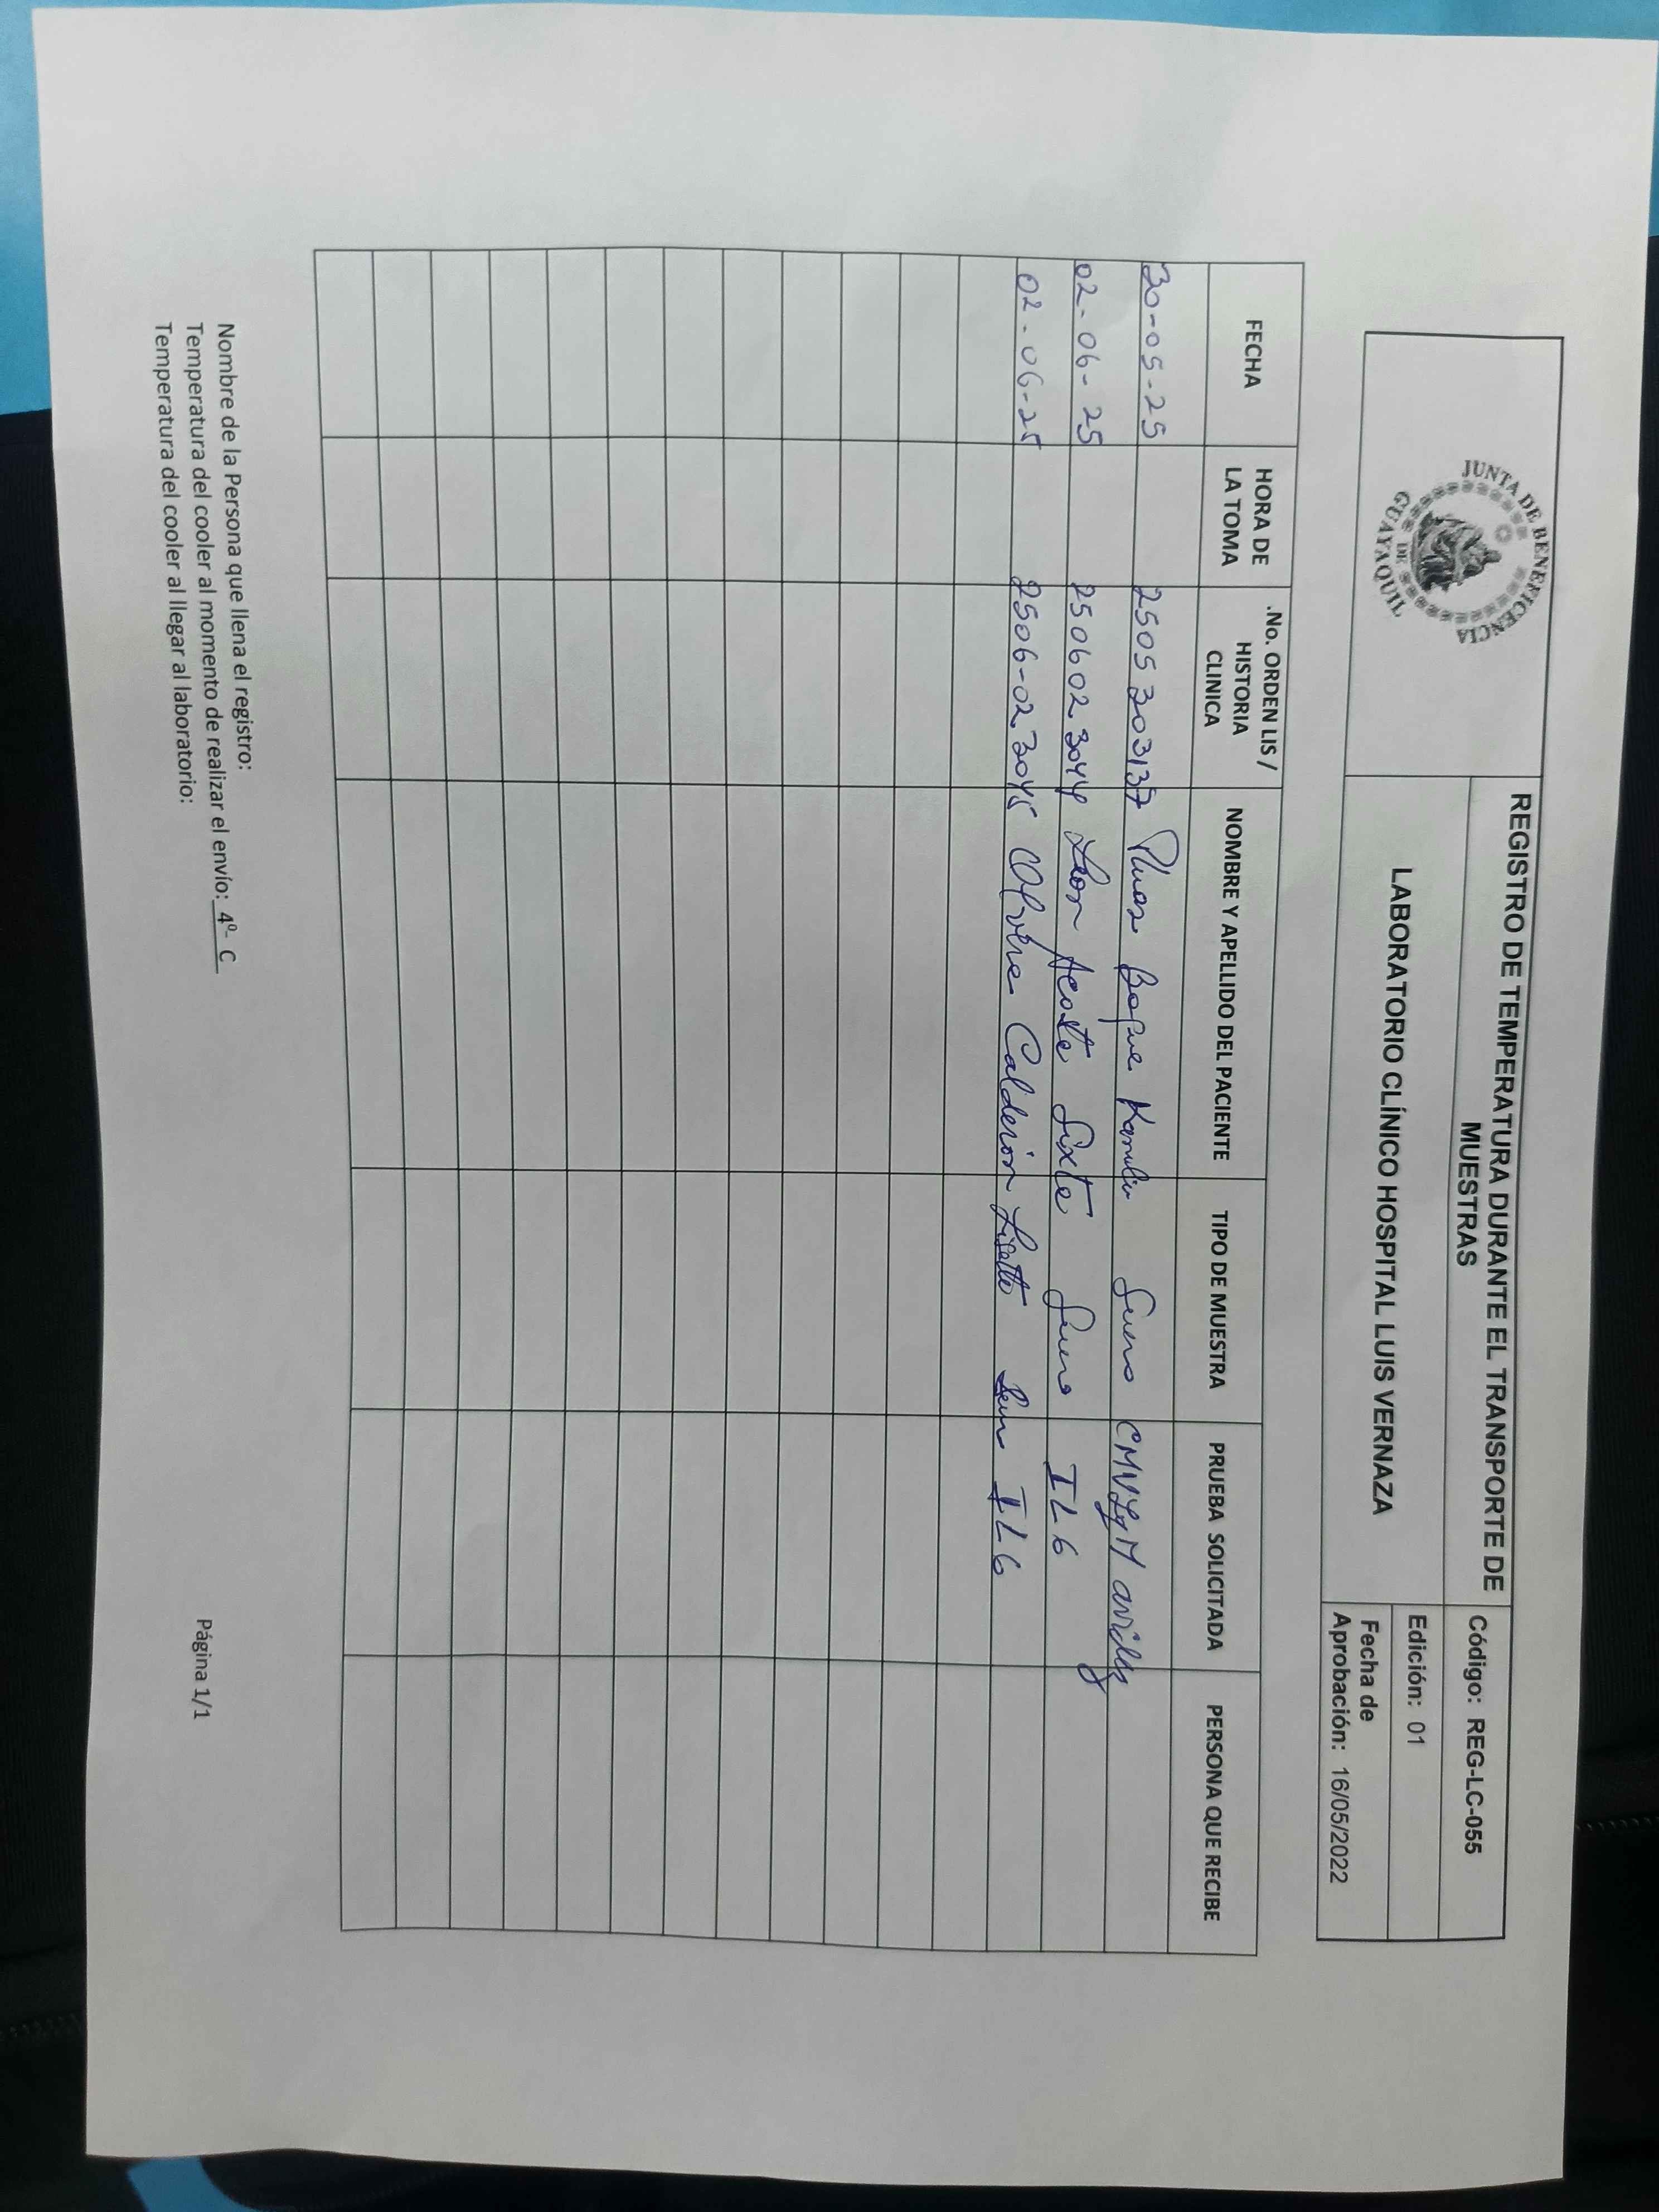 JUNTA DE BENEFICENCIA
DE
GUAYAQUIL
REGISTRO DE TEMPERATURA DURANTE EL TRANSPORTE DE
MUESTRAS
Código: REG-LC-055
LABORATORIO CLÍNICO HOSPITAL LUIS VERNAZA
Edición: 01
Fecha de
Aprobación: 16/05/2022
FECHA HORA DE LA TOMA .No. ORDEN LIS / HISTORIA CLINICA NOMBRE Y APELLIDO DEL PACIENTE TIPO DE MUESTRA PRUEBA SOLICITADA PERSONA QUE RECIBE
30-05-25 2505303137 Pluas Boque Suero CMV IgM avidez
02-06-25 2506023044 Leon Acosta Sixto Suero IL6
02-06-25 2506-023045 Calderón Lisette Suero IL6
Nombre de la Persona que llena el registro:
Temperatura del cooler al momento de realizar el envío: 4º- C
Temperatura del cooler al llegar al laboratorio:
Página 1/1